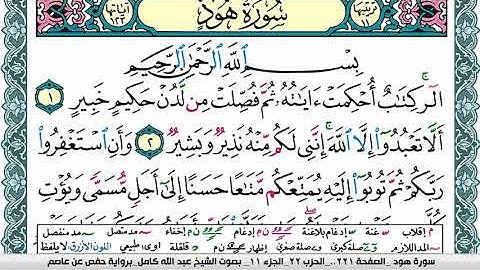 ترتيبها ١١
سُورَةُ هُودٍ
آياتها ١٢٣
بِسْمِ ٱللَّهِ ٱلرَّحْمَٰنِ ٱلرَّحِيمِ
الٓر ۚ كِتَٰبٌ أُحْكِمَتْ ءَايَٰتُهُۥ ثُمَّ فُصِّلَتْ مِن لَّدُنْ حَكِيمٍ خَبِيرٍ ١
أَلَّا تَعْبُدُوٓا۟ إِلَّا ٱللَّهَ ۚ إِنَّنِى لَكُم مِّنْهُ نَذِيرٌ وَبَشِيرٌ ٢ وَأَنِ ٱسْتَغْفِرُوا۟
رَبَّكُمْ ثُمَّ تُوبُوٓا۟ إِلَيْهِ يُمَتِّعْكُم مَّتَٰعًا حَسَنًا إِلَىٰٓ أَجَلٍ مُّسَمًّى وَيُؤْتِ
م إقلاب ـ غنة ـ إدغام بلاغنة ن إدغام ـ إخفاء ـ مد متصل ـ مد منفصل
ـ المد اللازم ـ صلة كبرى ـ صلة صغرى إظهار ـ قلقلة اوى: طبيعي اللون الأزرق: لا يلفظ
سورة هود _الصفحة ٢٢١.._الحزب ٢٢_الجزء ١١_ بصوت الشيخ عبد الله كامل_برواية حفص عن عاصم